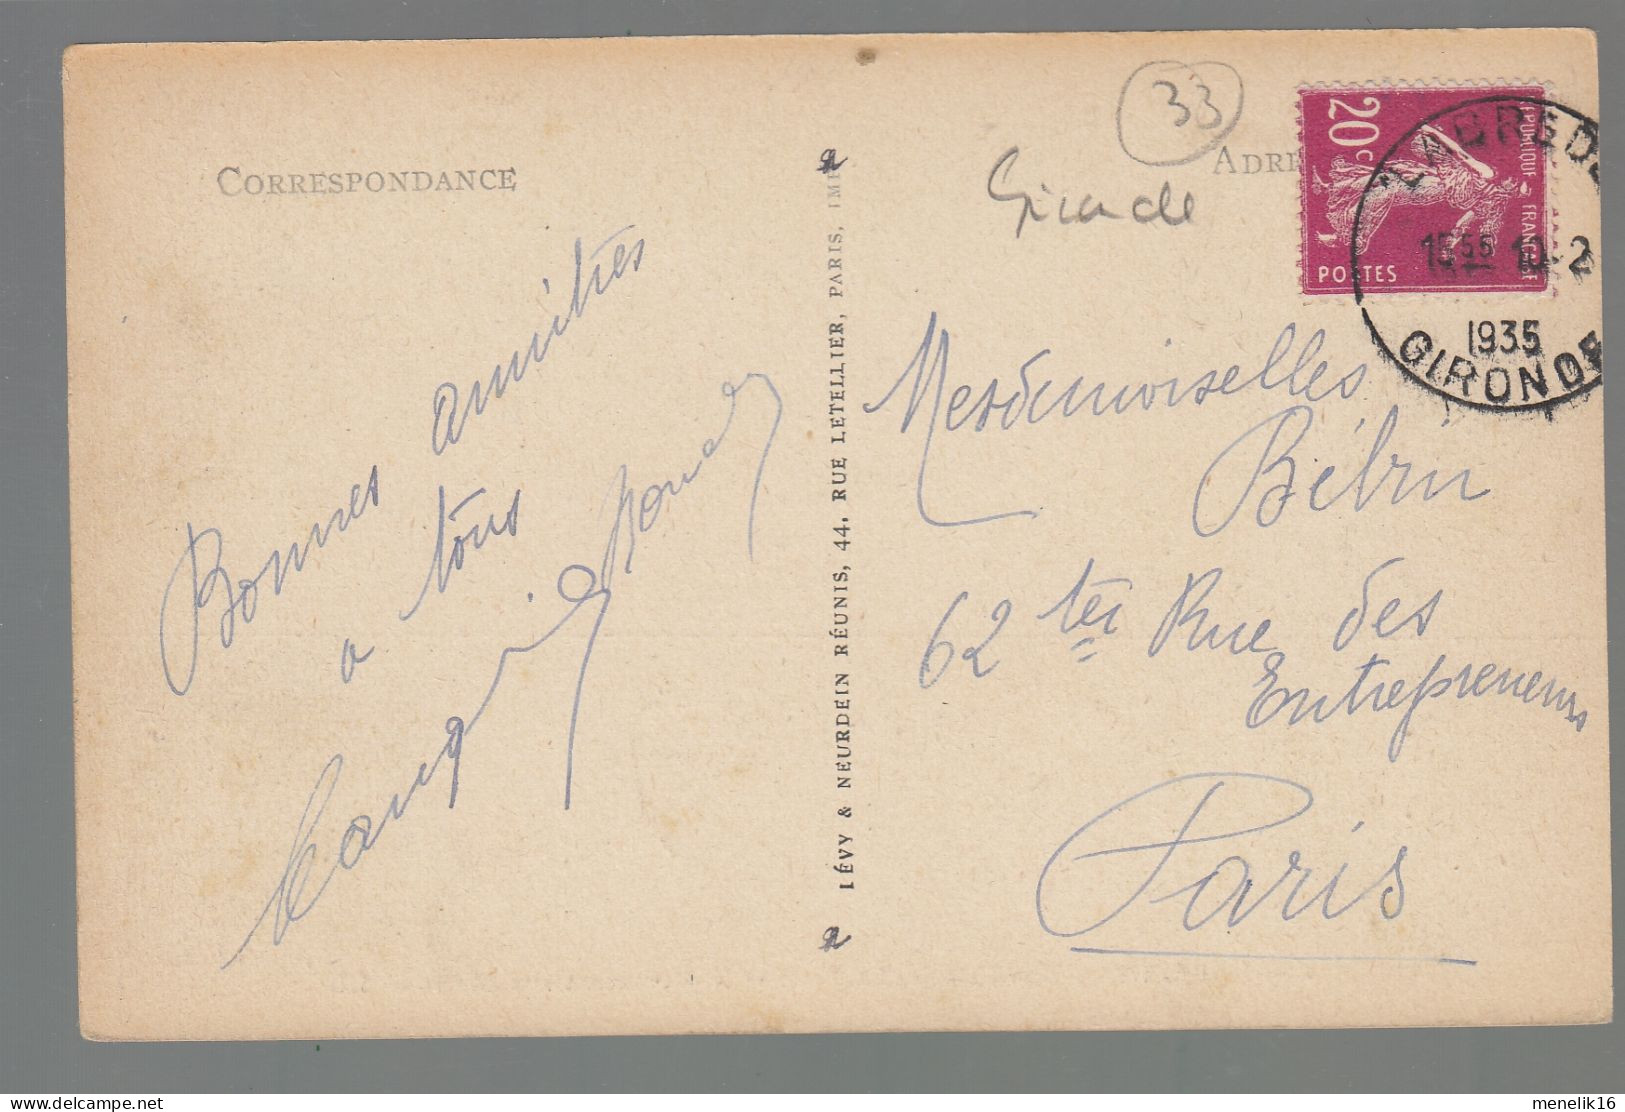 CORRESPONDANCE
Bonnes amitiés
a tous
LÉVY & NEURDEIN RÉUNIS, 44, RUE LETELLIER, PARIS, IMP
33
Gironde
ADRE
20 c
REPUBLIQUE FRANÇAISE
POSTES
LABREDE
15 55 10-2
1935
GIRONDE
Mesdemoiselles
Bélin
62 ter Rue des
Entrepreneurs
Paris
menelik16